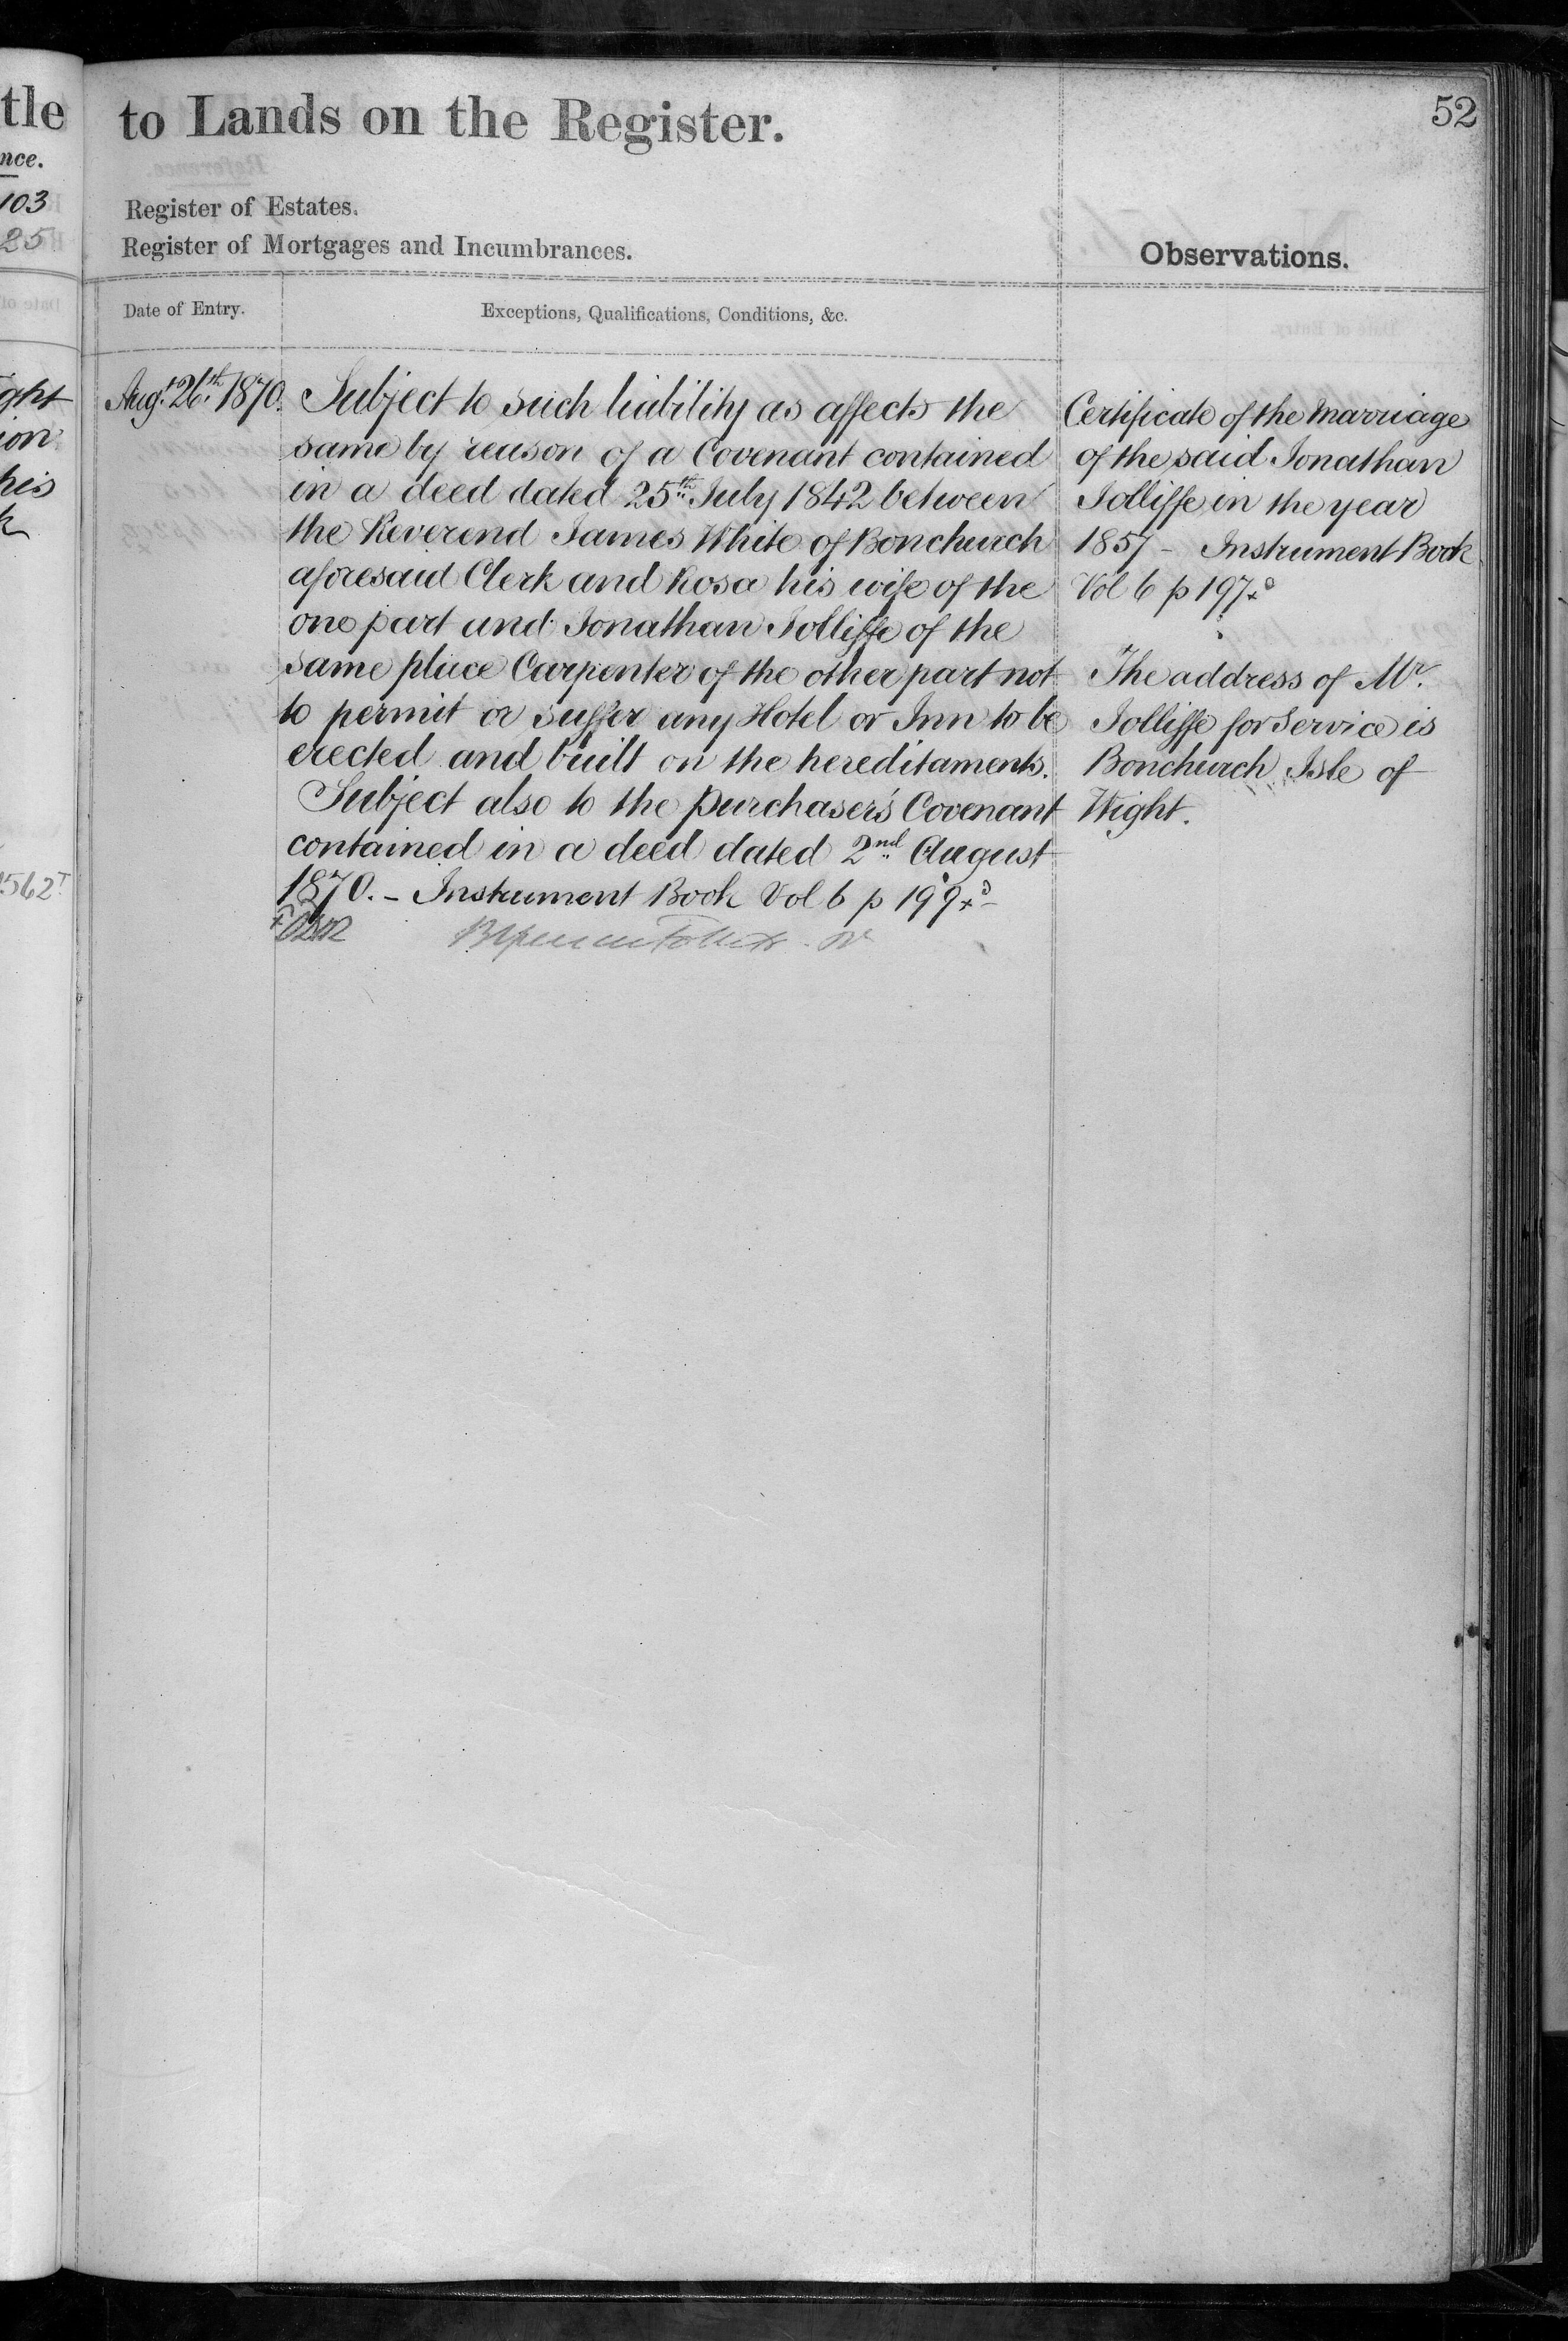 tle
nce.
103
25
ght
ion
his
562
to Lands on the Register.
52
Register of Estates.
Register of Mortgages and Incumbrances.
Observations.
Date of Entry.
Exceptions, Qualifications, Conditions, &c.
Augt. 26th. 1870.
Subject to such liability as affects the
same by reason of a Covenant contained
in a deed dated 25th July 1842 between
the Reverend James White of Bonchurch
aforesaid Clerk and Rosa his wife of the
one part and Jonathan Jolliffe of the
same place Carpenter of the other part not
to permit or suffer any Hotel or Inn to be
erected and built on the hereditaments.
Subject also to the purchaser's Covenant
contained in a deed dated 2nd August
1870. - Instrument Book Vol 6 p 199
Certificate of the Marriage
of the said Jonathan
Jolliffe in the year
1857 - Instrument Book
Vol 6 p 197
The address of Mr.
Jolliffe for Service is
Bonchurch Isle of
Wight.